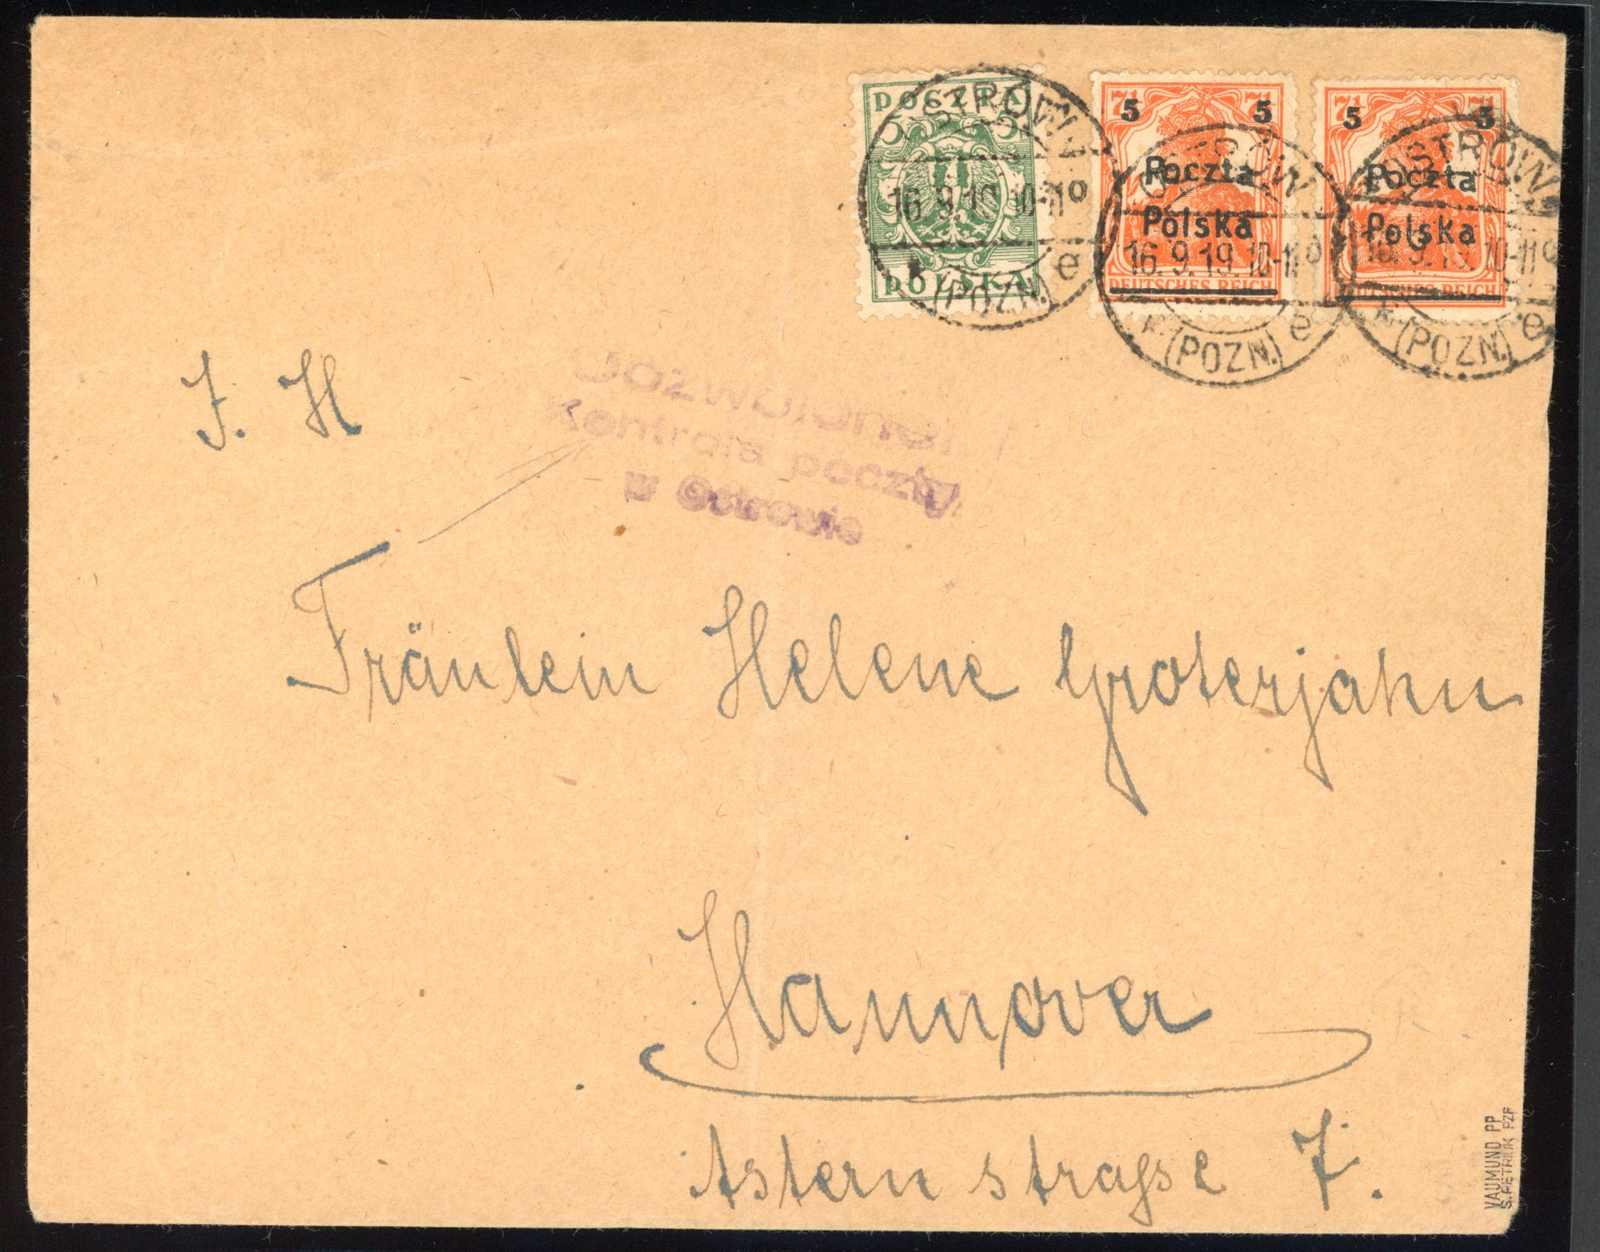 POCZTA
5 5
POLSKA
7½ 7½
5 5
Poczta
Polska
DEUTSCHES REICH
7½ 7½
5 5
Poczta
Polska
DEUTSCHES REICH
OSTRÓW
16.9.19 10-11º
* (POZN.) e
OSTRÓW
16.9.19 10-11º
* (POZN.) e
OSTRÓW
16.9.19 10-11º
* (POZN.) e
J. H
Dozwolone!
Kontrola poczty
w Ostrowie
Fräulein Helene Groterjahn
Hannover
Asternstraße 7.
VAUMUND PP
S. PETRIUK PZF